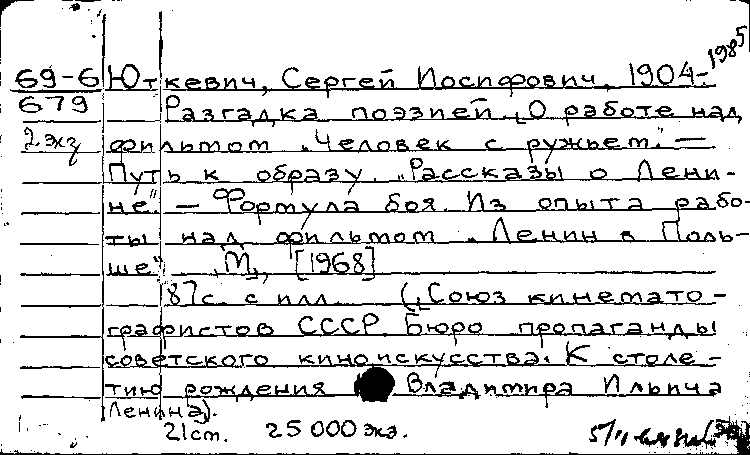 69-6 Юткевич, Сергей Иосифович, 1904-1985
679 Разгадка поэзией. [О работе над
2 экз фильмом „Человек с ружьем". —
Путь к образу. „Рассказы о Лени-
не". — Формула боя. Из опыта рабо-
ты над фильмом „Ленин в Поль-
ше"]. М., [1968]
87 с. с илл. (Союз кинемато-
графистов СССР. Бюро пропаганды
советского киноискусства. К столе-
тию рождения Владимира Ильича
Ленина).
21 см. 25 000 экз.